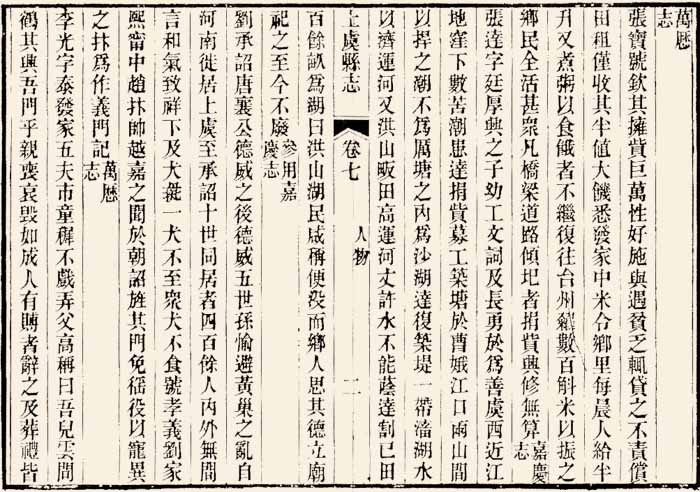 萬厯志
張寶號欽其擁貲巨萬性好施與遇貧乏輒貸之不責償
田租僅收其半値大饑悉發家中米令鄉里每晨人給半
升又煮粥以食餓者不繼復往台州糴數百斛米以振之
鄉民全活甚衆凡橋梁道路傾圮者捐貲興修無算嘉慶志
張達字廷厚興之子幼工文詞及長勇於爲善虞西近江
地窪下數苦潮患達捐貲募工築塘於曹娥江口兩山間
以捍之潮不爲厲塘之內爲沙湖達復築堤一帶濇湖水
以濟運河又洪山畈田高運河丈許水不能蔭達割已田
上虞縣志 卷七 人物 二
百餘畝爲湖曰洪山湖民咸稱便歿而鄉人思其德立廟
祀之至今不廢參用嘉慶志
劉承詔唐襄公德威之後德威五世孫愉避黃巢之亂自
河南徙居上虞至承詔十世同居者四百餘人內外無間
言和氣致祥下及犬彘一犬不至衆犬不食號孝義劉家
熙甯中趙抃帥越嘉之聞於朝詔旌其門免徭役以寵異
之抃爲作義門記萬厯志
李光字泰發家五夫市童穉不戲弄父高稱曰吾兒雲間
鶴其興吾門乎親喪哀毁如成人有賻者辭之及葬禮皆